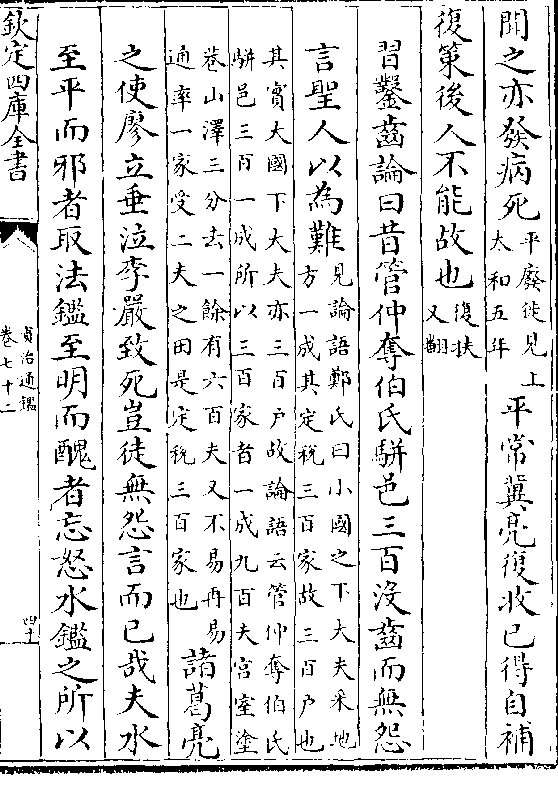 聞之亦發病死平廢徙見上太和五年平常冀亮復收已得自補
復策後人不能故也復扶又翻
習鑿齒論曰昔管仲奪伯氏駢邑三百沒齒而無怨
言聖人以為難見論語鄭氏曰小國之下大夫采地方一成其定稅三百家故三百戶也
其實大國下大夫亦三百戶故論語云管仲奪伯氏駢邑三百一成所以三百家者一成九百夫宮室塗
巷山澤三分去一餘有六百夫又不易再易通率一家受二夫之田是定稅三百家也諸葛亮
之使廖立垂泣李嚴致死豈徒無怨言而已哉夫水
至平而邪者取法鑑至明而醜者忘怒水鑑之所以
欽定四庫全書
資治通鑑
卷七十二
四十